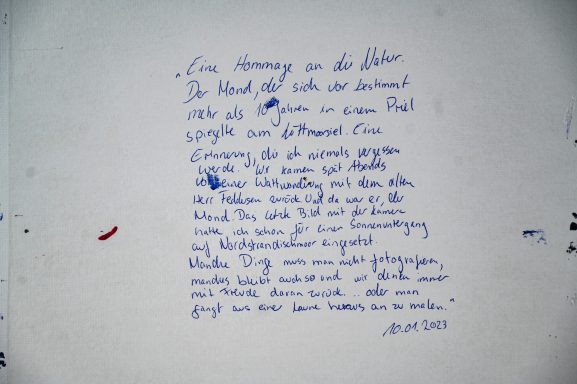 „Eine Hommage an die Natur.
Der Mond, der sich vor bestimmt
mehr als 10 Jahren in einem Priel
spiegelte am Lüttmoorsiel. Eine
Erinnerung, die ich niemals vergessen
werde. Wir kamen spät Abends
von einer Wattwanderung mit dem alten
Herr Feddersen zurück. Und da war er, der
Mond. Das letzte Bild mit der Kamera
hatte ich schon für einen Sonnenuntergang
auf Nordstrandischmoor eingesetzt.
Manche Dinge muss man nicht fotografieren,
manches bleibt auch so und wir denken immer
mit Freude daran zurück... oder man
fängt aus einer Laune heraus an zu malen."
10.01.2023